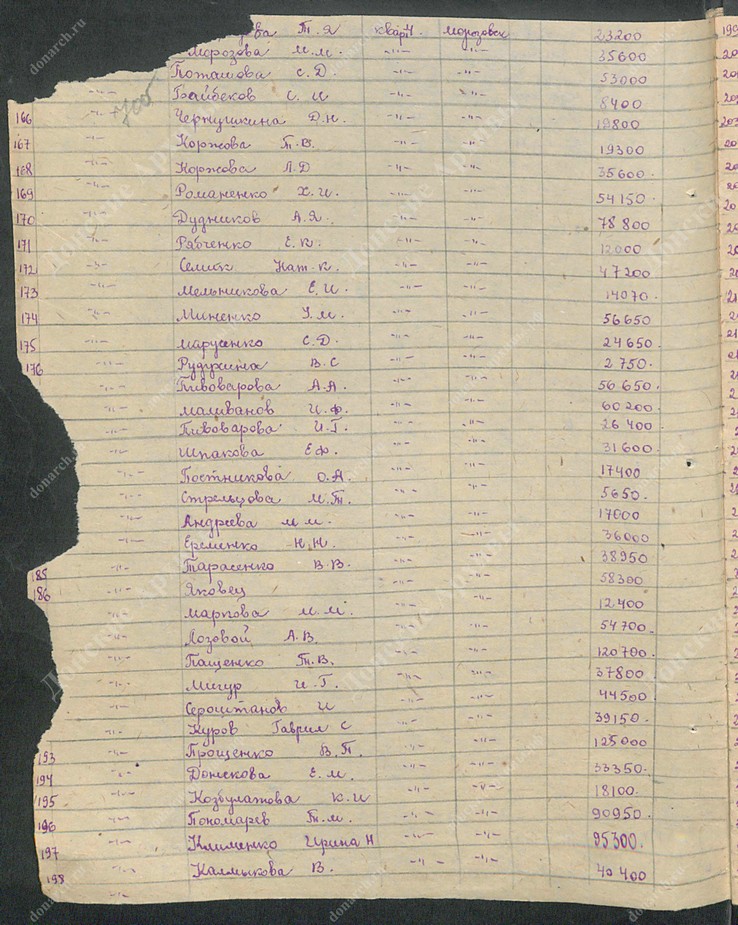 Т. Я кварт. морозовск 23200
Морозова М. М. -"- -"- 35600
Поташова С. Д. -"- -"- 53000
-"- 700 Байбеков С. И -"- -"- 8400
166 -"- Чернушкина Д. Н. -"- -"- 19800
167 -"- Коржова Т. В. -"- -"- 19300
168 -"- Коржова Л. Д -"- -"- 35600.
169 -"- Романенко Х. И. -"- -"- 54150.
170 -"- Дудников А. Я. -"- -"- 78800
171 -"- Рябченко Е. К. -"- -"- 12000
172 -"- Селик Нат. К. -"- -"- 47200
173 -"- Мельникова Е. И. -"- -"- 14070.
174 -"- Миненко У. М. -"- -"- 56650
175 -"- Марусенко С. Д. -"- -"- 24650.
176 -"- В. С -"- -"- 2750.
-"- Пивоварова А. А. -"- -"- 56650.
-"- Маливанов И. Ф. -"- -"- 60200.
-"- Пивоварова И. Г. -"- -"- 26400
-"- Шпакова Е. Ф. -"- -"- 31600.
-"- Постникова О. А. -"- -"- 17400
-"- Стрельцова М. Т. -"- -"- 5650.
-"- Андреева М. М. -"- -"- 17000
-"- Еременко Н. Н. -"- -"- 36000
-"- Тарасенко В. В. -"- -"- 38950
185 -"- Яковец -"- -"- 58300
186 -"- Маркова М. М. -"- -"- 12.400
-"- Лозовой А. В -"- -"- 54700.
-"- Пащенко Т. В. -"- -"- 120700.
-"- Мигур И. Г. -"- -"- 37800
-"- Сероштанов И -"- -"- 44500
-"- Куров Гаврил С -"- -"- 39150.
193 -"- Прощенко В. П. -"- -"- 125000
194 -"- Донскова Е. М. -"- -"- 33350.
195 -"- Козбулатова К. И -"- -"- 18100.
196 -"- Пономарев Т. М. -"- -"- 90950.
197 -"- Клименко Ирина Н -"- -"- 95300.
198 -"- Калмыкова В. -"- -"- 40400
-"-
donarch.ru
Донские Архивы